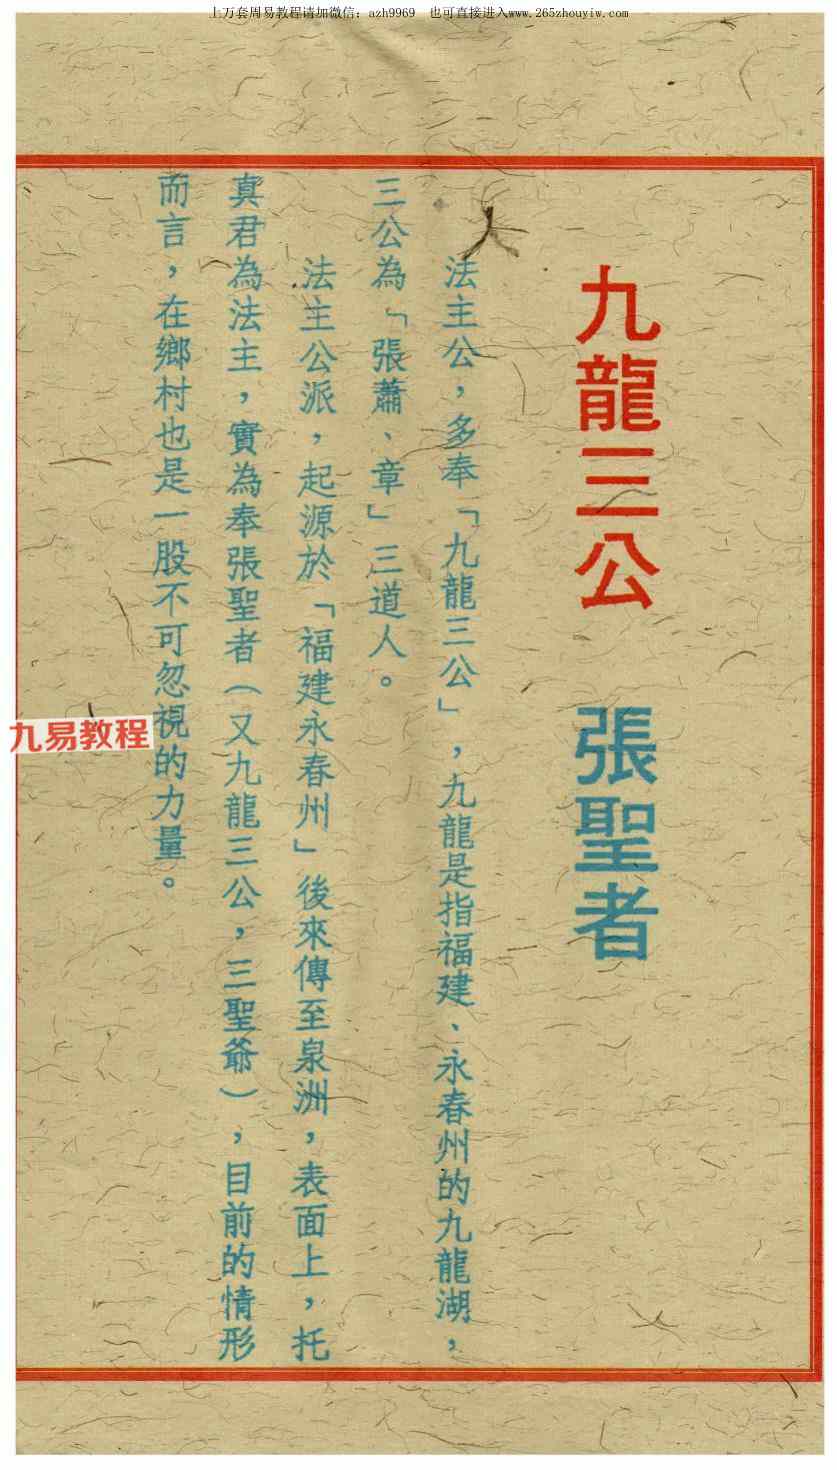 上万套周易教程请加微信：azh9969　也可直接进入www.265zhouyiw.com
九龍三公　張聖者
法主公，多奉「九龍三公」，九龍是指福建、永春州的九龍湖，
三公為「張蕭、章」三道人。
法主公派，起源於「福建永春州」後來傳至泉洲，表面上，托
真君為法主，實為奉張聖者（又九龍三公，三聖爺），目前的情形
而言，在鄉村也是一股不可忽視的力量。
九易教程